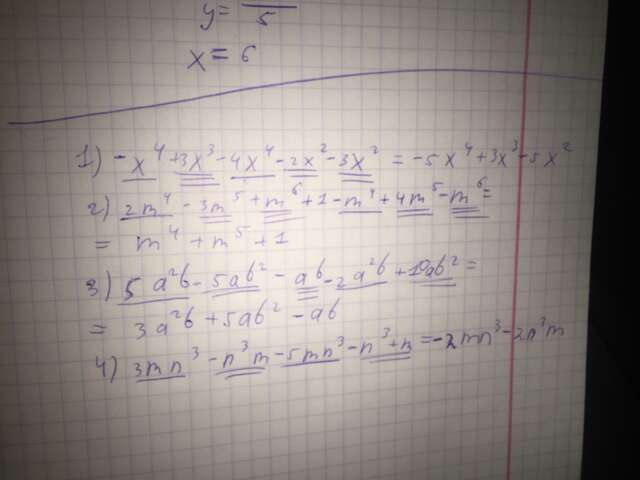 y = 5
x = 6
1) -x⁴ + 3x³ - 4x⁴ - 2x² - 3x² = -5x⁴ + 3x³ - 5x²
2) 2m⁴ - 3m⁵ + m⁶ + 1 - m⁴ + 4m⁵ - m⁶ =
= m⁴ + m⁵ + 1
3) 5a²b - 5ab² - ab - 2a²b + 10ab² =
= 3a²b + 5ab² - ab
4) 3mn³ - n³m - 5mn³ - n³ + n = -2mn³ - 2n³m